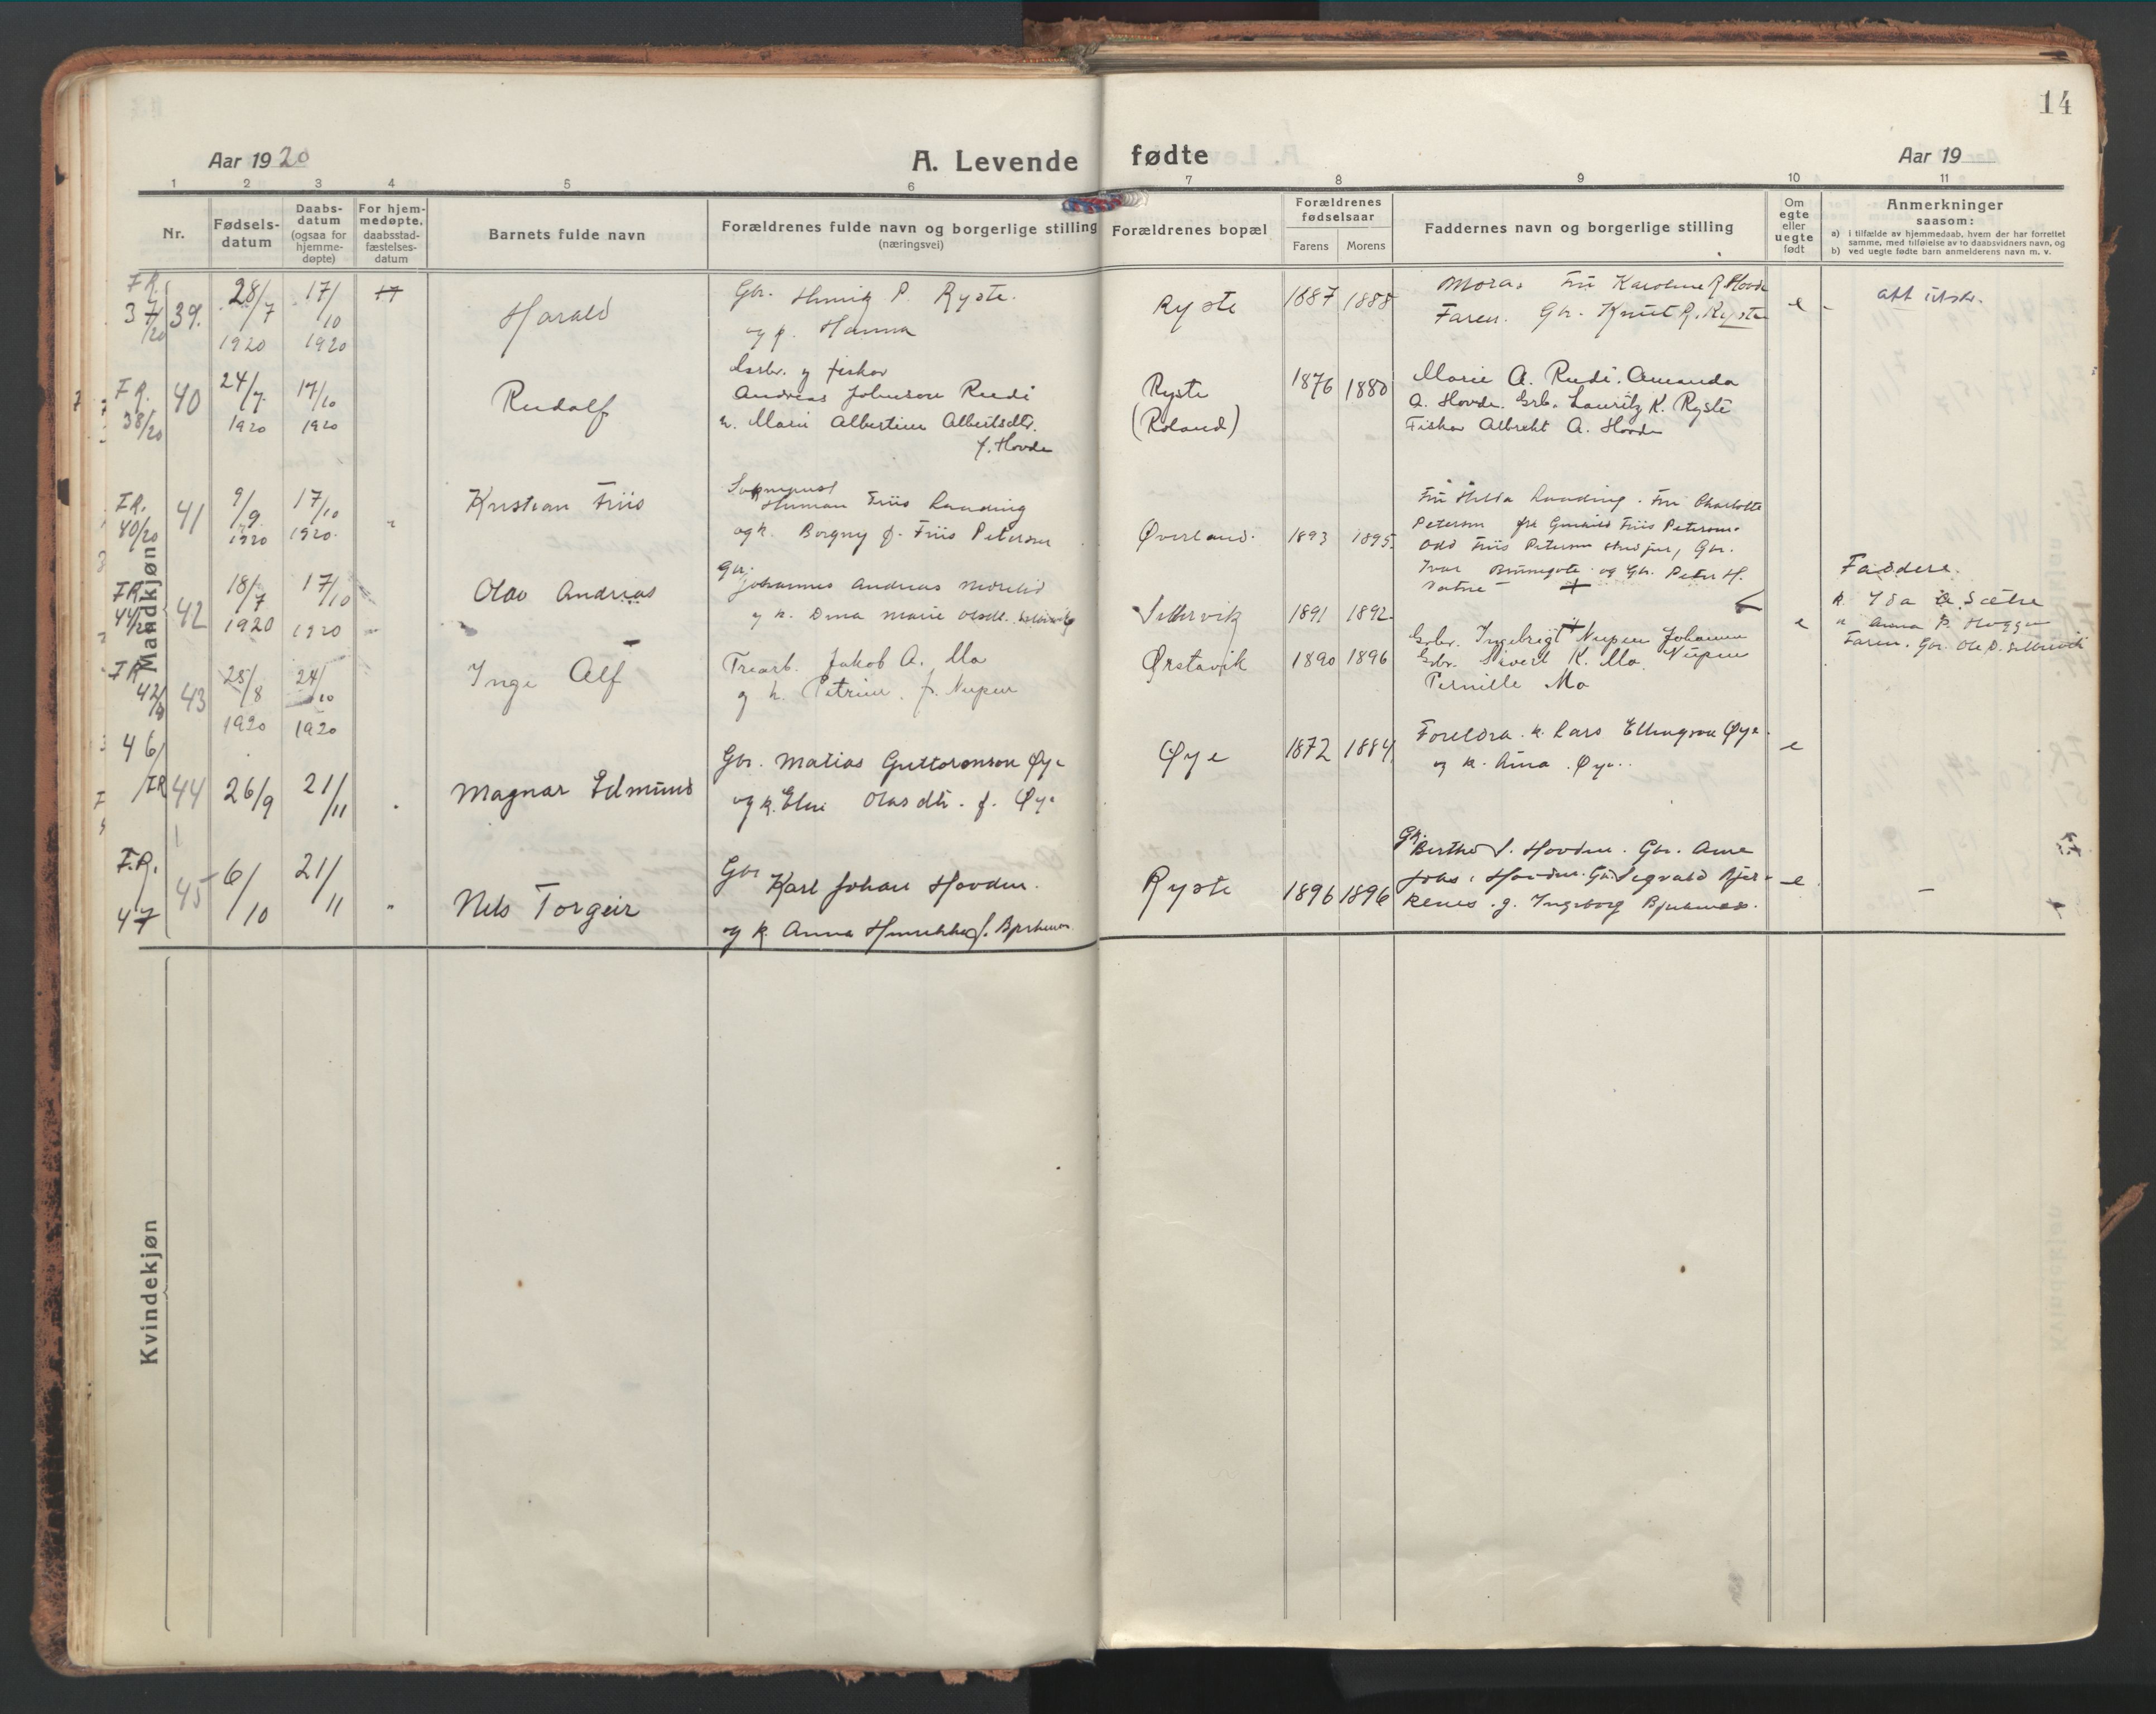 14
Aar 1920
A. Levende fødte
Aar 19
1 2 3 4 5 6 7 8 9 10 11
Nr.
Fødsels-
datum
Daabs-
datum
(ogsaa for
hjemme-
døpte)
For hjem-
medøpte,
daabsstad-
fæstelses-
datum
Barnets fulde navn
Forældrenes fulde navn og borgerlige stilling
(næringsvei)
Forældrenes bopæl
Forældrenes
fødselsaar
Farens Morens
Faddernes navn og borgerlige stilling
Om
egte
eller
uegte
født
Anmerkninger
saasom:
a) i tilfælde av hjemmedaab, hvem der har forrettet
samme, med tilføielse av to daabsvidners navn, og
b) ved uegte fødte barn anmelderens navn m. v.
Mandkjøn
F.R.
37/20 39. 28/7 1920 17/10 1920
Harald
Gbr. P. Ryste.
og k. Hanna
Ryste
1887 1888
Mora. Fru Karoline R. Hovde
Faren. Gbr. Knut R. Ryste
e
att utskr.
F.R.
38/20 40 24/7 1920 17/10 1920
Rudolf
og fiskar
Andreas Johnson Rudi
k. Marie Albertine Albertsdtr.
f. Hovde
Ryste
(Roland)
1876 1880
Marie A. Rudi. Amanda
A. Hovde. Grb. Lauritz K. Ryste
Fiskar Albrekt A. Hovde
F.R.
40/20 41 9/9 1920 17/10 1920.
Kristian Friis
Friis
og k. Borgny f. Friis Petersen
Øverland.
1893 1895.
Fru Charlotte
Petersen Friis Petersen.
Odd Friis Petersen stud jur, Gbr.
Ivar og Gbr. Peter H.
F.R.
44/20 42 18/7 1920 17/10 1920
Olav Andreas
Gbr.
Johannes Andreas
og k. Marie
1891 1892
e
Faddere.
k. Ida Sætre
k. Anna P.
Faren. Gbr. Ole
F.R.
42/ 43 25/8 1920 24/10 1920
Inge Alf
Trearb. Jakob A. Mo
og k. Petrine. f. Nupen
Ørstavik
1890 1896
Grbr. Ingebrigt Nupen Johanne
Grbr. Sivert K. Mo. Nupen
Pernille Mo
46/
F.R. 44 26/9 21/11
Magnar Edmund
Gbr. Matias Guttormson Øye
og k. Olasdtr. f. Øye
Øye
1872 1884
Foreldra. k. Lars Ellingson Øye.
og k. Anna Øye.
e
F.R.
47 45 6/10 21/11
Nils Torgeir
Gbr Karl Johan Hovden.
og k. Anna f.
Ryste
1896 1896
S. Hovden. Gbr. Arne
Hovden. Gbr. Sigvald Bjer-
kenes. g. Ingeborg
e
Kvindekjøn